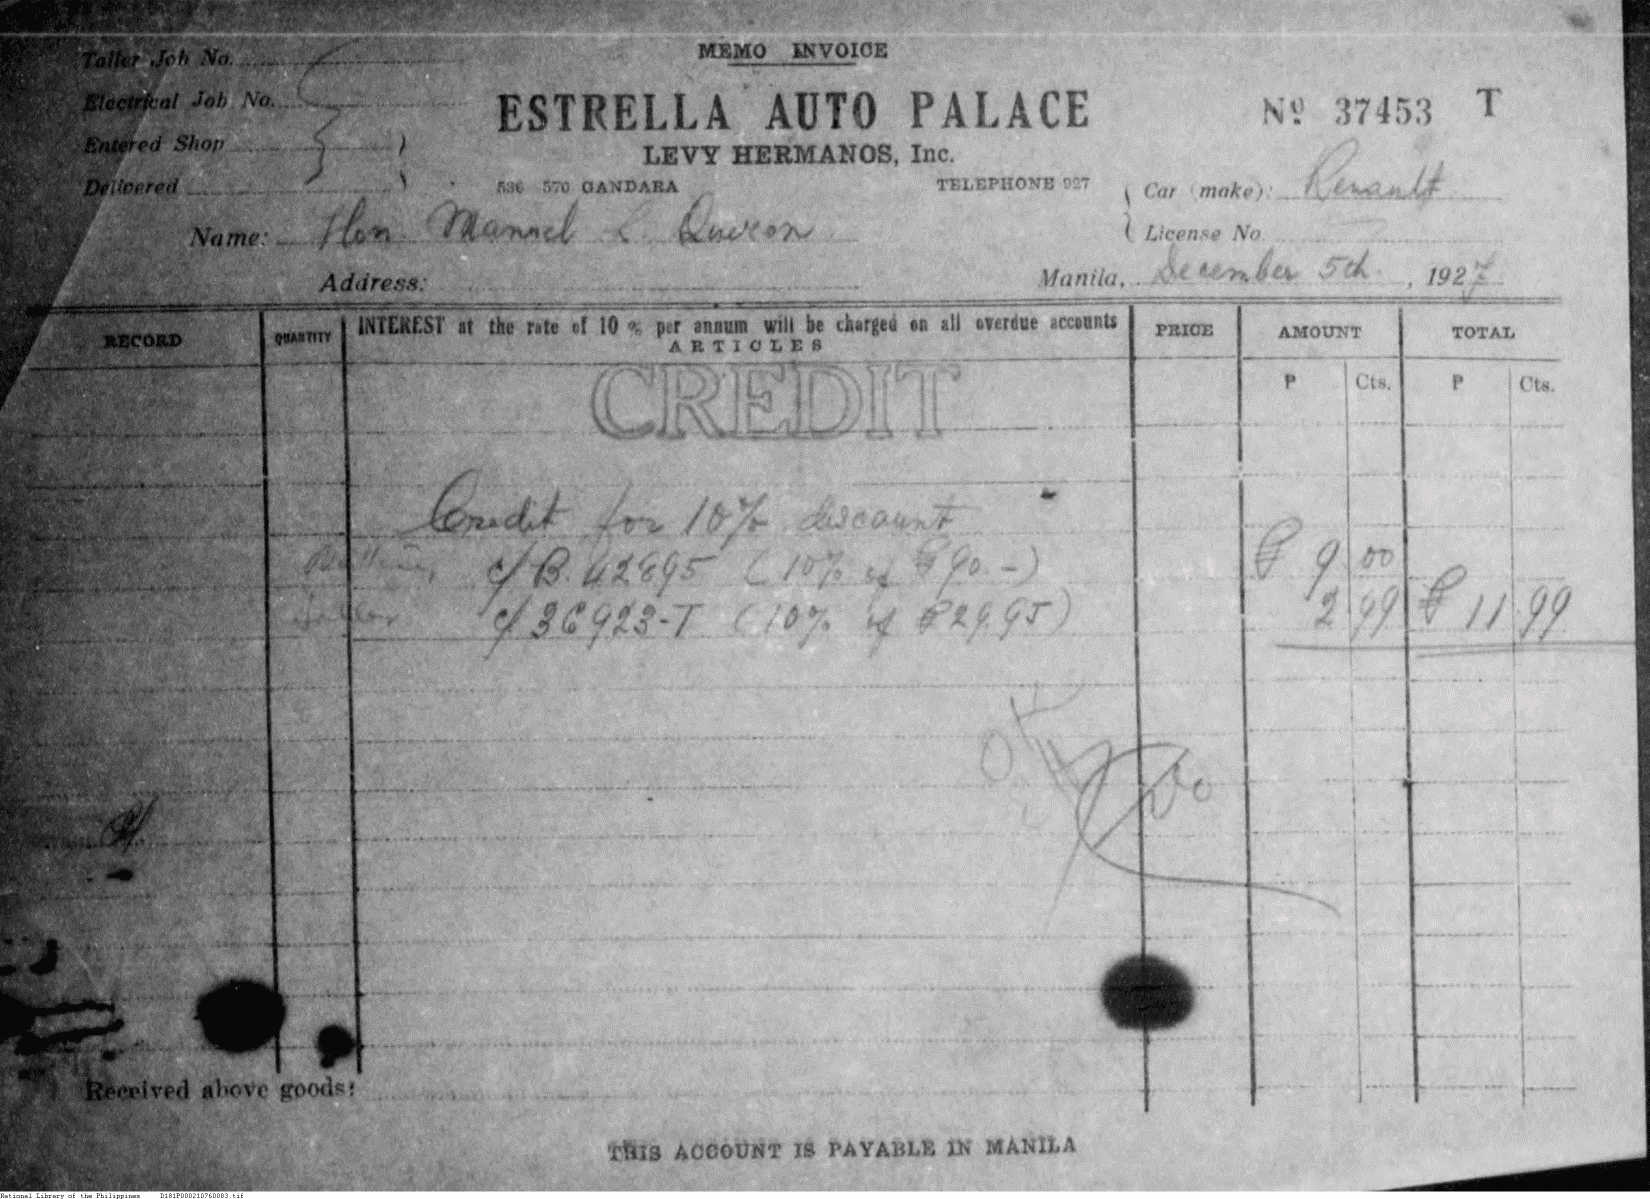 MEMO INVOICE
Taller Job No.
Electrical Job No.
ESTRELLA AUTO PALACE
Nº 37453 T
Entered Shop
LEVY HERMANOS, Inc.
Delivered
536 570 GANDARA TELEPHONE 927
Car (make): Renault
Name: Hon. Manuel L. Quezon
License No.
Address:
Manila, December 5th. , 1927
RECORD QUANTITY INTEREST at the rate of 10 % per annum will be charged on all overdue accounts PRICE AMOUNT TOTAL
ARTICLES
₱ Cts. ₱ Cts.
CREDIT
Credit for 10% discount
c/B. 42895 (10% of ₱90.-) ₱ 9 00
Taller c/36923-T (10% of ₱29.95) 2 99 ₱ 11 99
Received above goods:
THIS ACCOUNT IS PAYABLE IN MANILA
National Library of the Philippines D181P000210760003.tif